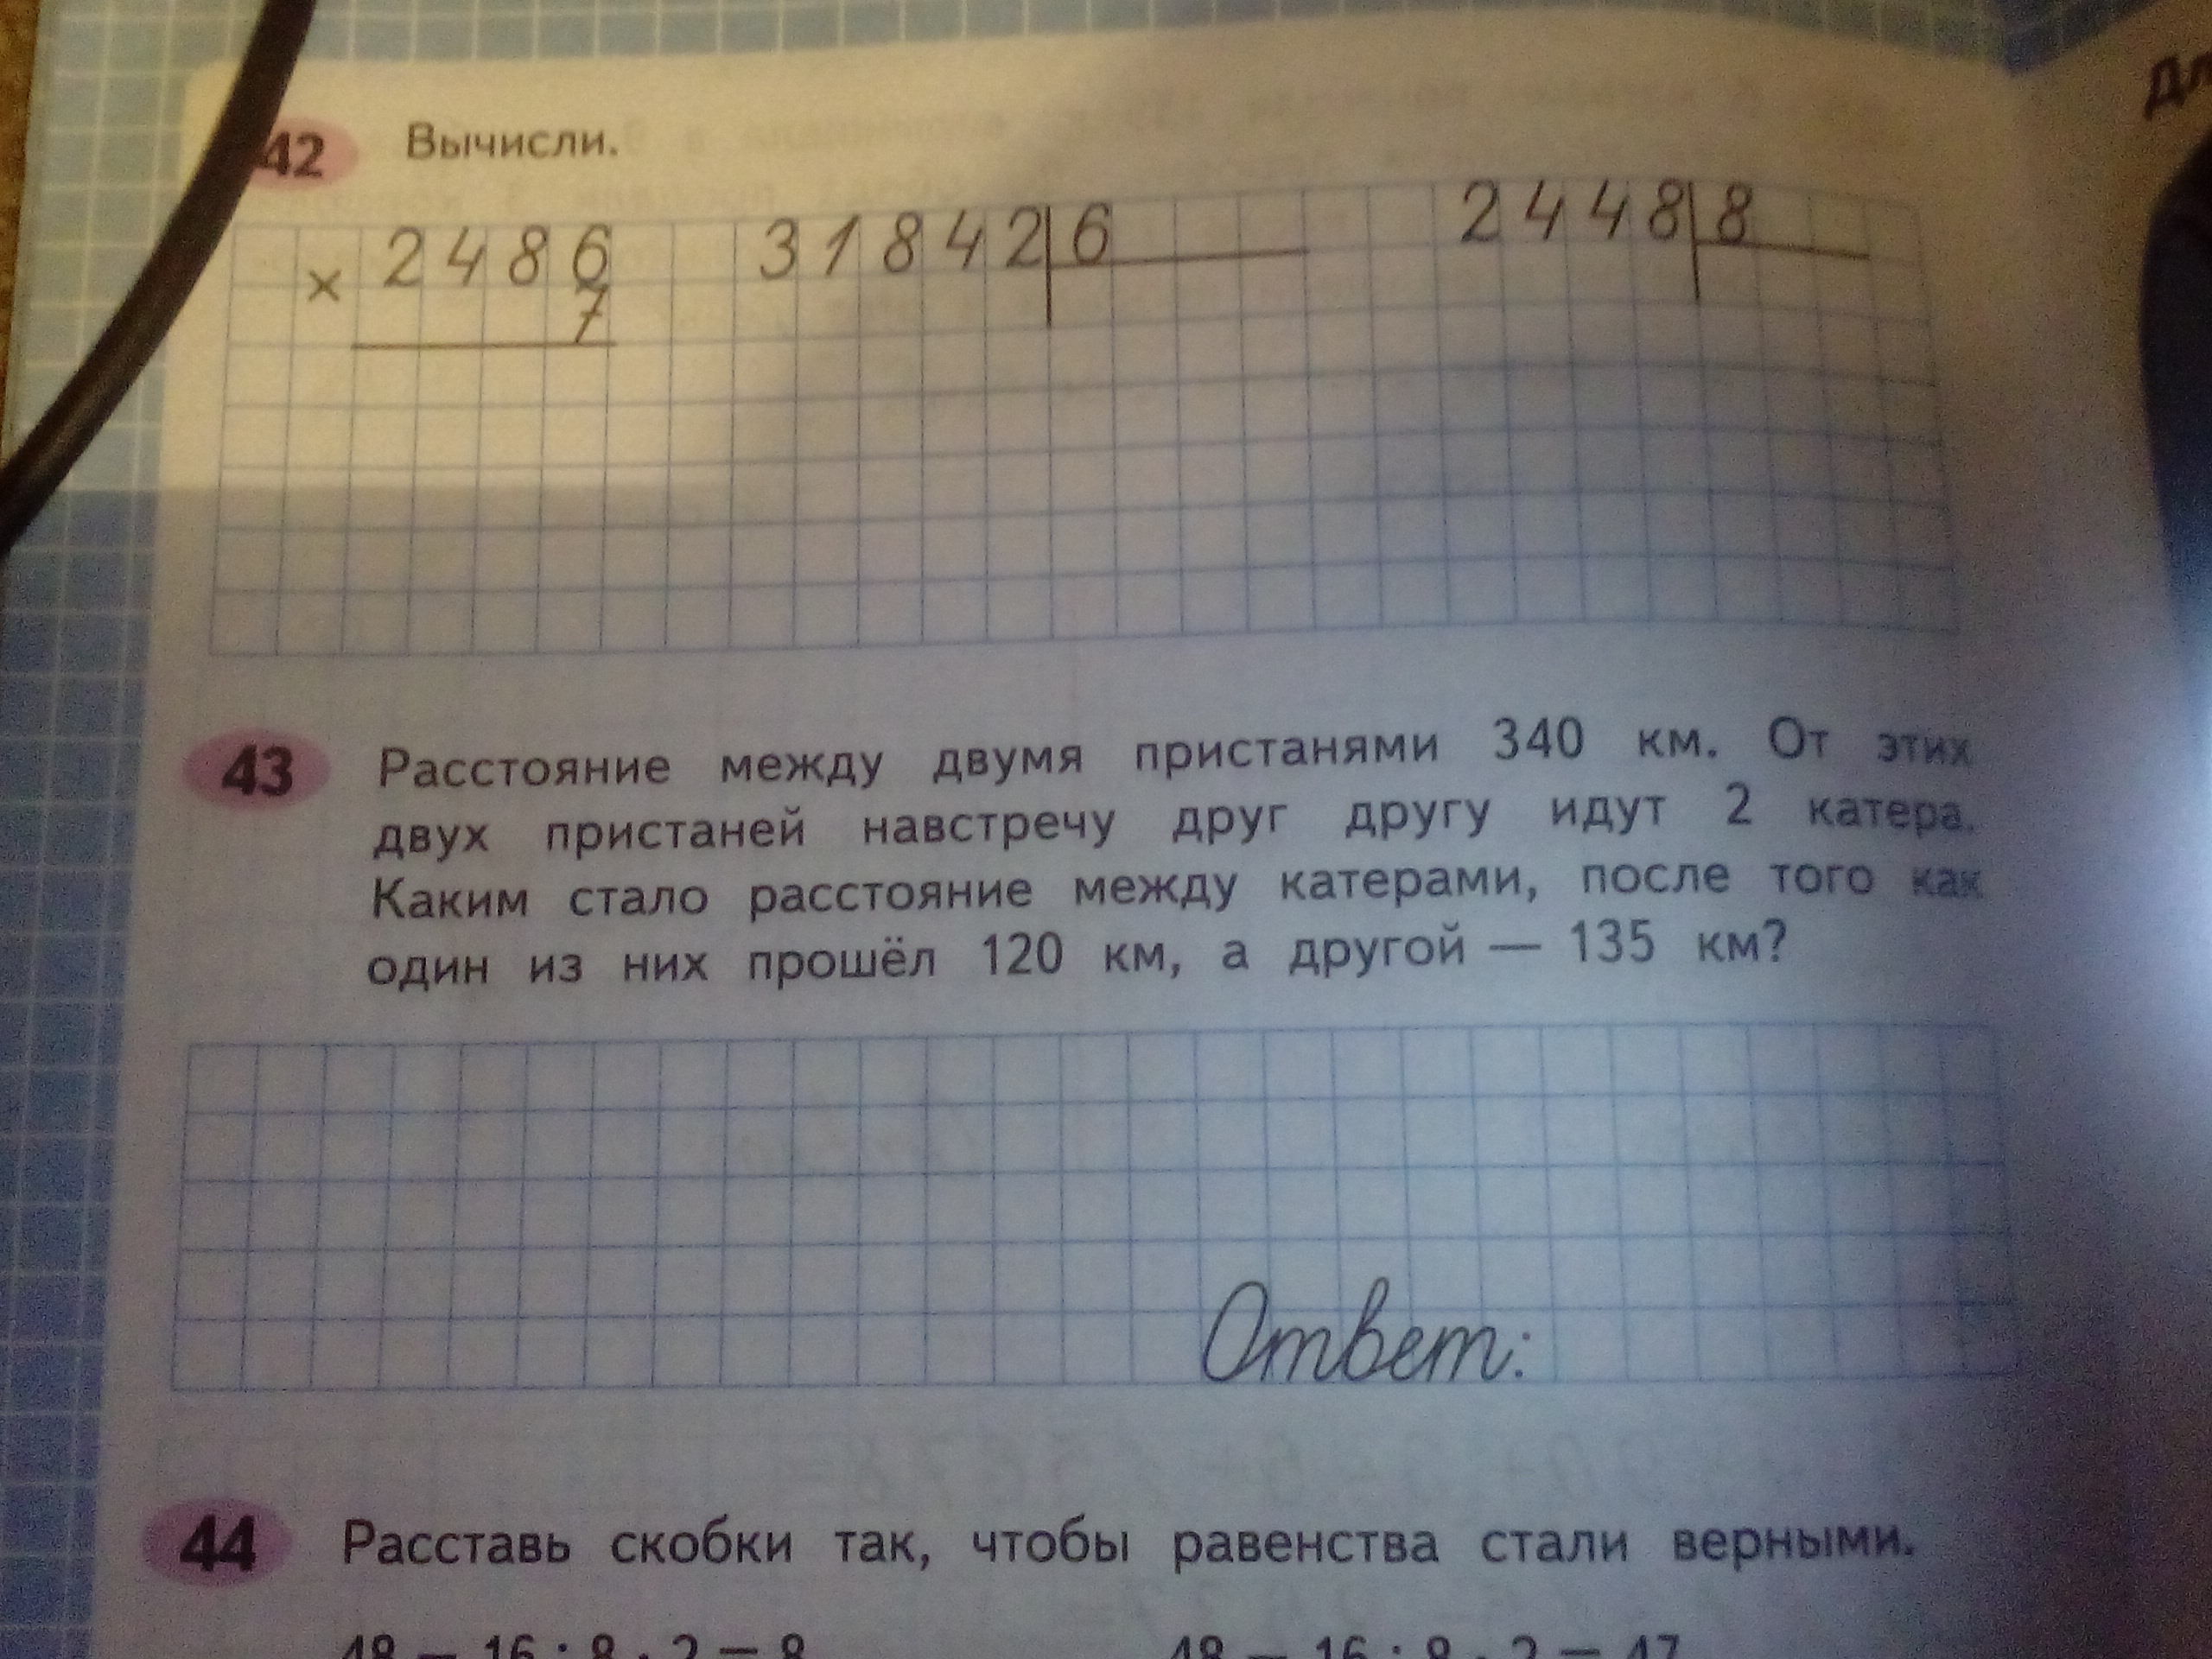 Дл
42 Вычисли.
× 2486 31842 6 2448 8
7
43 Расстояние между двумя пристанями 340 км. От этих
двух пристаней навстречу друг другу идут 2 катера.
Каким стало расстояние между катерами, после того как
один из них прошёл 120 км, а другой — 135 км?
Ответ:
44 Расставь скобки так, чтобы равенства стали верными.
48 − 16 : 8 · 2 = 8 48 − 16 : 8 · 2 = 47